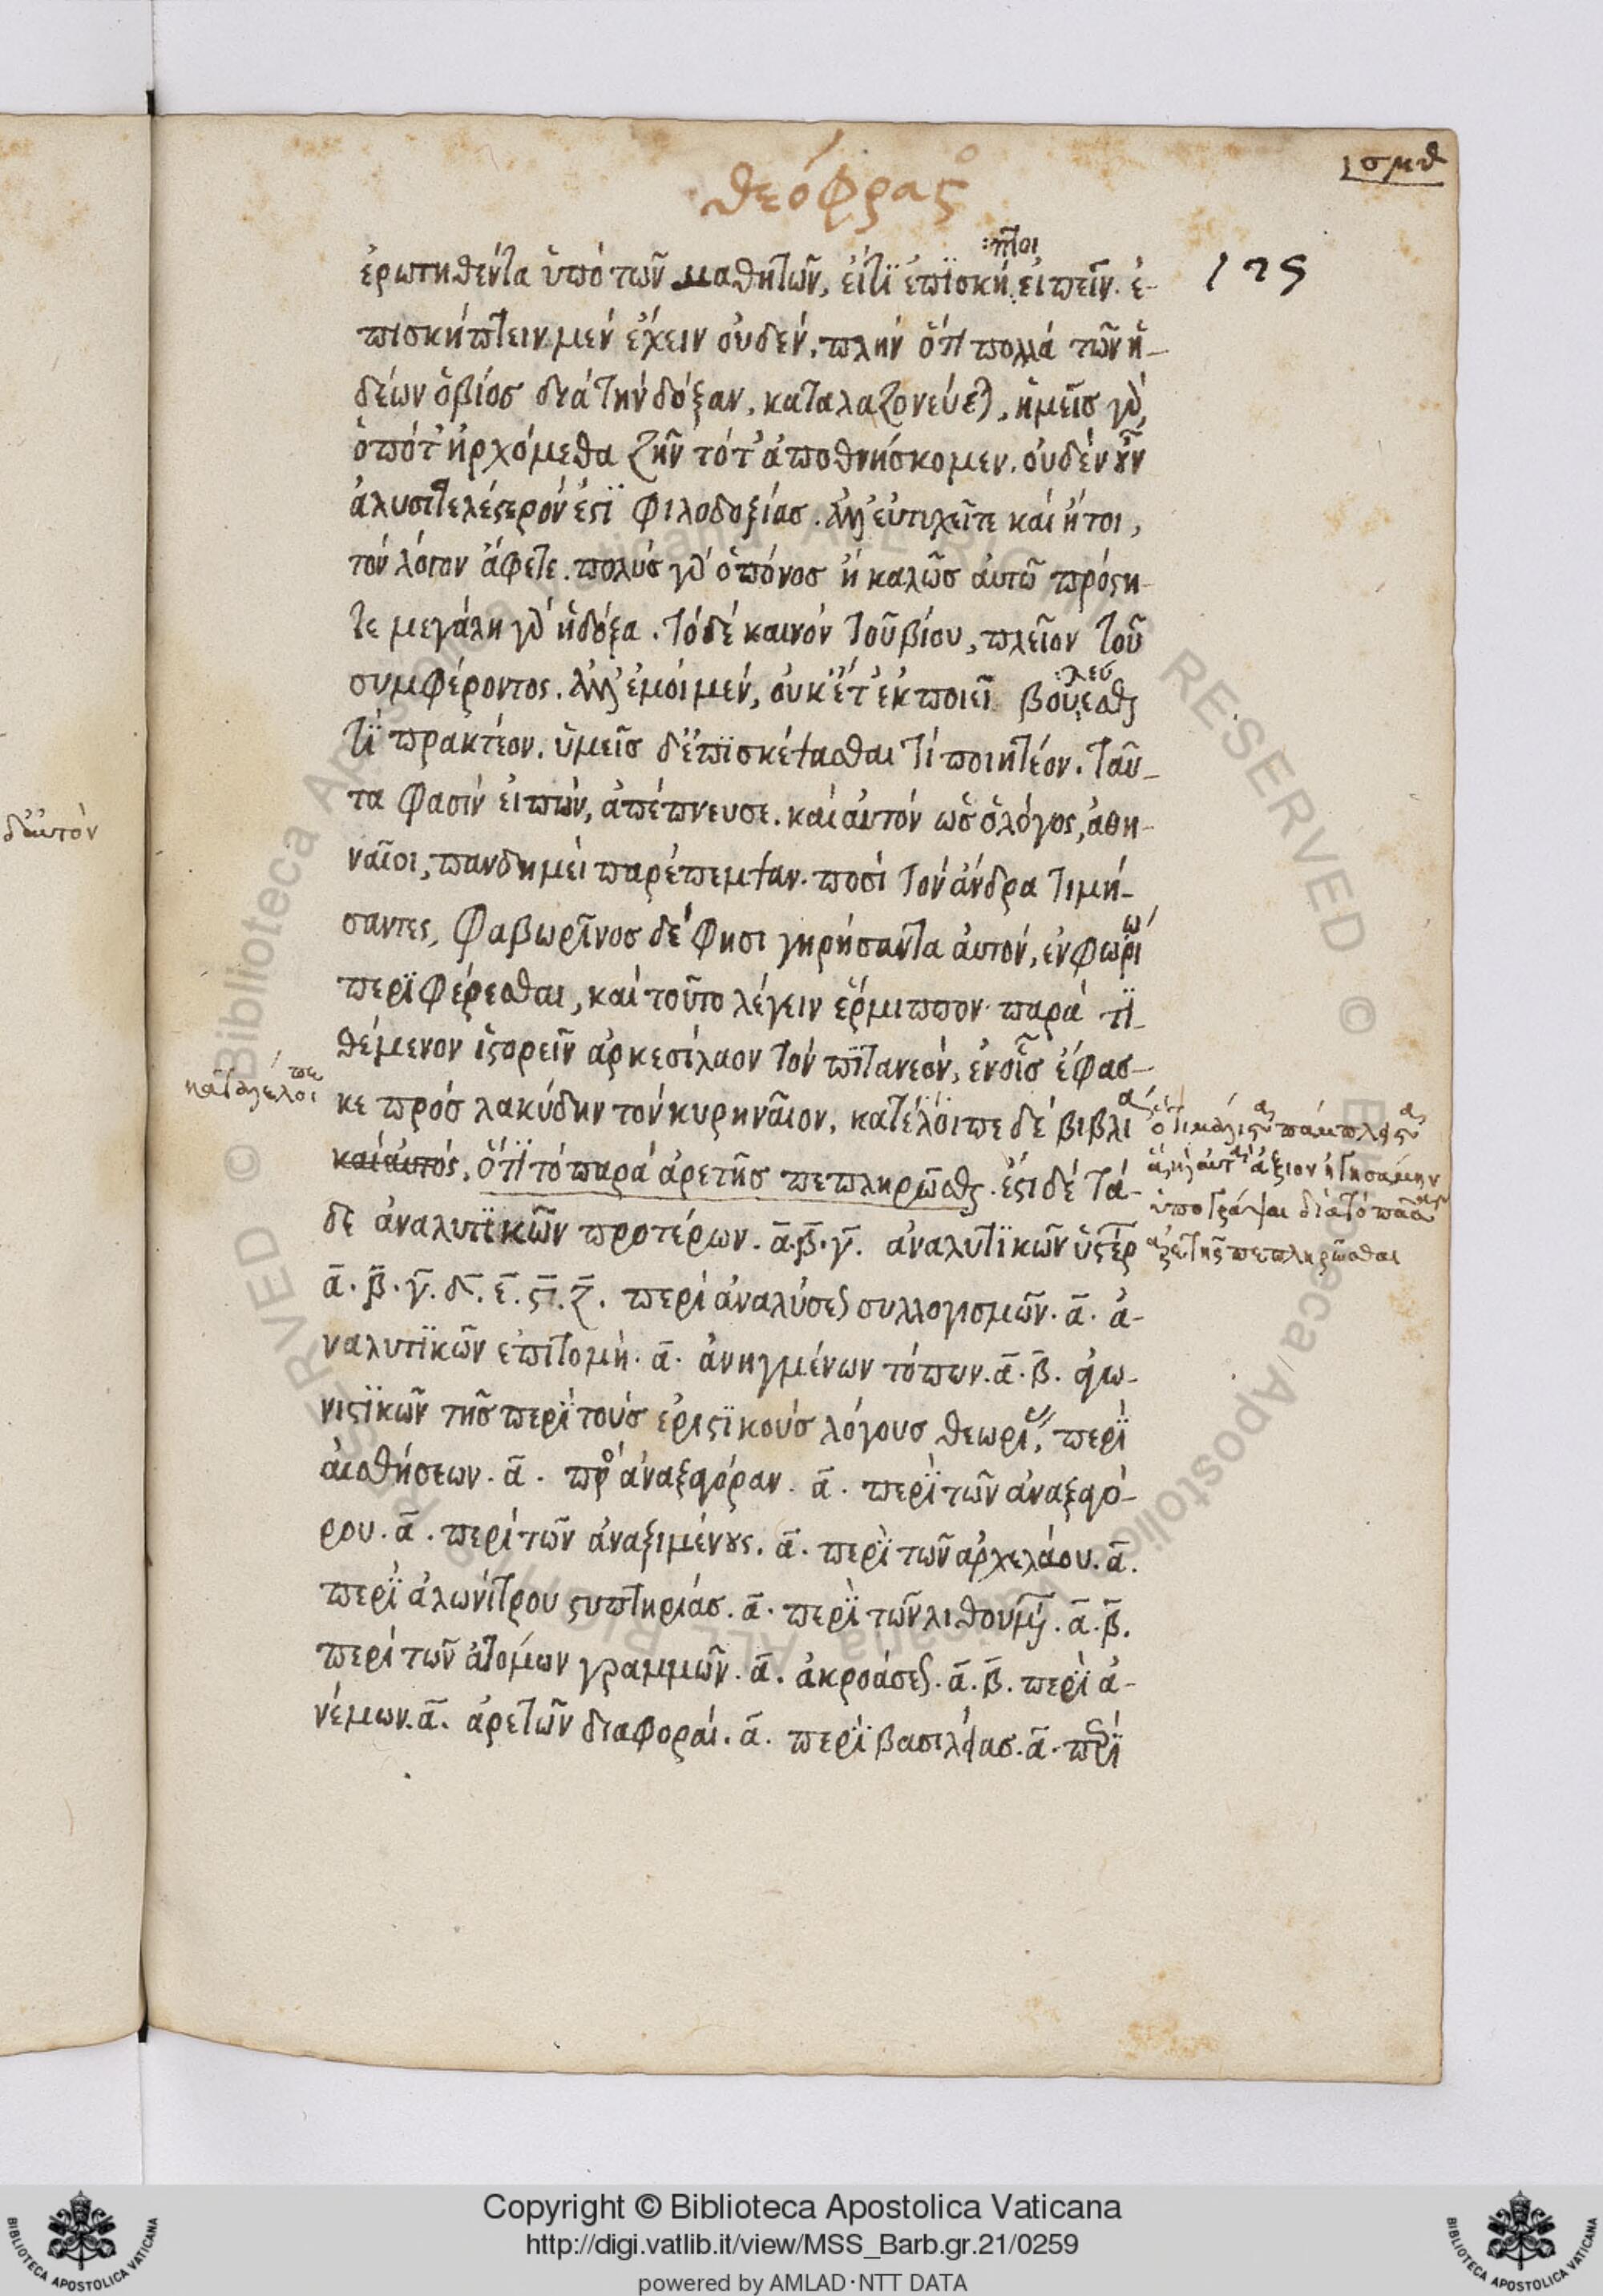 σμθ
θεόφραστος
125
ἐρωτηθέντα ὑπὸ τῶν μαθητῶν, εἴ τι ἐπισκήπτοι εἰπεῖν. ἐ-
πισκήπτειν μὲν ἔχειν οὐδέν, πλὴν ὅτι πολλὰ τῶν ἡ-
δέων ὁ βίος διὰ τὴν δόξαν, καταλαζονεύεται, ἡμεῖς γὰρ
ὁπότ' ἠρχόμεθα ζῆν τότ' ἀποθνήσκομεν. οὐδὲν οὖν
ἀλυσιτελέστερόν ἐστι φιλοδοξίας. ἀλλ' εὐτυχεῖτε καὶ ἤτοι,
τὸν λόγον ἄφετε. πολὺς γὰρ ὁ πόνος ἢ καλῶς αὐτῶ πρόςη-
τε μεγάλη γὰρ ἡ δόξα. τὸ δὲ καινὸν τοῦ βίου, πλεῖον τοῦ
συμφέροντος. ἀλλ' ἐμοὶ μέν, οὐκέτ' ἐκποιεῖ βουλεύεσθαι
τί πρακτέον. ὑμεῖς δ' ἐπισκέψασθαι τί ποιητέον. ταῦ-
τα φασὶν εἰπών, ἀπέπνευσε. καὶ αὐτὸν ὡς ὁ λόγος, ἀθη-
ναῖοι, πανδημεὶ παρέπεμψαν. ποσὶ τὸν ἄνδρα τιμή-
σαντες, φαβωρῖνος δέ φησι γηρήσαντα αὐτόν, ἐν φωρίω
περιφέρεσθαι, καὶ τοῦτο λέγειν ἕρμιππον παρὰ τι-
θέμενον ἱστορεῖν ἀρκεσίλαον τὸν πιτανεόν, ἐν οἷς ἔφασ-
κε πρὸς λακύδην τὸν κυρηναῖον, κατέλοιπε δὲ βιβλία
καὶ αὐτός, ὅτι τὸ παρὰ ἀρετῆς πεπληρῶσθαι. ἔστι δὲ τά-
δε ἀναλυτικῶν προτέρων. α. β. γ. ἀναλυτικῶν ὑστέρ
α. β. γ. δ. ε. ϛ. ζ. περὶ ἀναλύσεως συλλογισμῶν. α. ἀ-
ναλυτικῶν ἐπιτομή. α. ἀνηγμένων τόπων. α. β. ἀγω-
νιστικῶν τῆς περὶ τοὺς ἐριστικοὺς λόγους θεωρίας, περὶ
αἰσθήσεων. α. πρὸς ἀναξαγόραν. α. περὶ τῶν ἀναξαγό-
ρου. α. περὶ τῶν ἀναξιμένους. α. περὶ τῶν ἀρχελάου. α.
περὶ ἁλῶνίτρου στυπτηρίας. α. περὶ τῶν λιθουμένων. α. β.
περὶ τῶν ἀτόμων γραμμῶν. α. ἀκροάσεως. α. β. περὶ ἀ-
νέμων. α. ἀρετῶν διαφοραί. α. περὶ βασιλείας. α. περὶ
δ' αὐτὸν
καταλέλοιπε
ὅτι μάλιστα πάμπλειστα
ἃ καὶ αὐτὰ ἄξιον ἡγησάμην
ὑπογράψαι διὰ τὸ πάσης
ἀρετῆς πεπληρῶσθαι
Copyright © Biblioteca Apostolica Vaticana
http://digi.vatlib.it/view/MSS_Barb.gr.21/0259
powered by AMLAD·NTT DATA